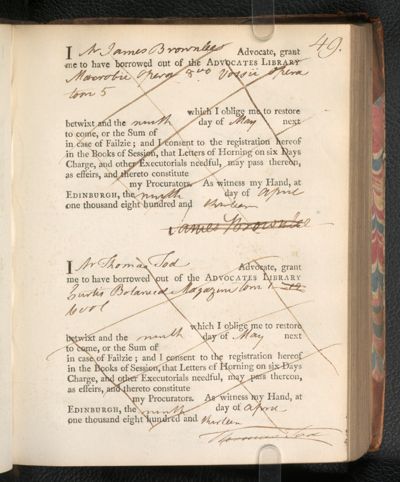 49.
I Mr James Brownlee Advocate, grant
me to have borrowed out of the ADVOCATES LIBRARY
Macrobii Opera 8vo Vossii Opera
tom 5
which I oblige me to restore
betwixt and the ninth day of May next
to come, or the Sum of
in case of Failzie; and I consent to the registration hereof
in the Books of Session, that Letters of Horning on six Days
Charge, and other Executorials needful, may pass thereon,
as effeirs, and thereto constitute
my Procurators. As witness my Hand, at
EDINBURGH, the ninth day of April
one thousand eight hundred and thirteen
James Brownlee
I Mr Thomas Tod Advocate, grant
me to have borrowed out of the ADVOCATES LIBRARY
Curtis Botanical Magazine tom
which I oblige me to restore
betwixt and the ninth day of May next
to come, or the Sum of
in case of Failzie; and I consent to the registration hereof
in the Books of Session, that Letters of Horning on six Days
Charge, and other Executorials needful, may pass thereon,
as effeirs, and thereto constitute
my Procurators. As witness my Hand, at
EDINBURGH, the ninth day of April
one thousand eight hundred and thirteen
Thomas Tod